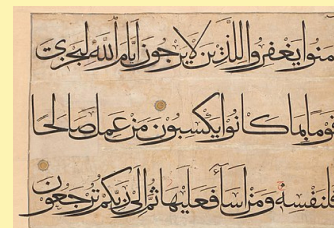 منوا يغفروا للذين لا يرجون أيام الله ليجزي
قوما بما كانوا يكسبون من عمل صالحا
فلنفسه ومن أساء فعليها ثم إلى ربكم ترجعون